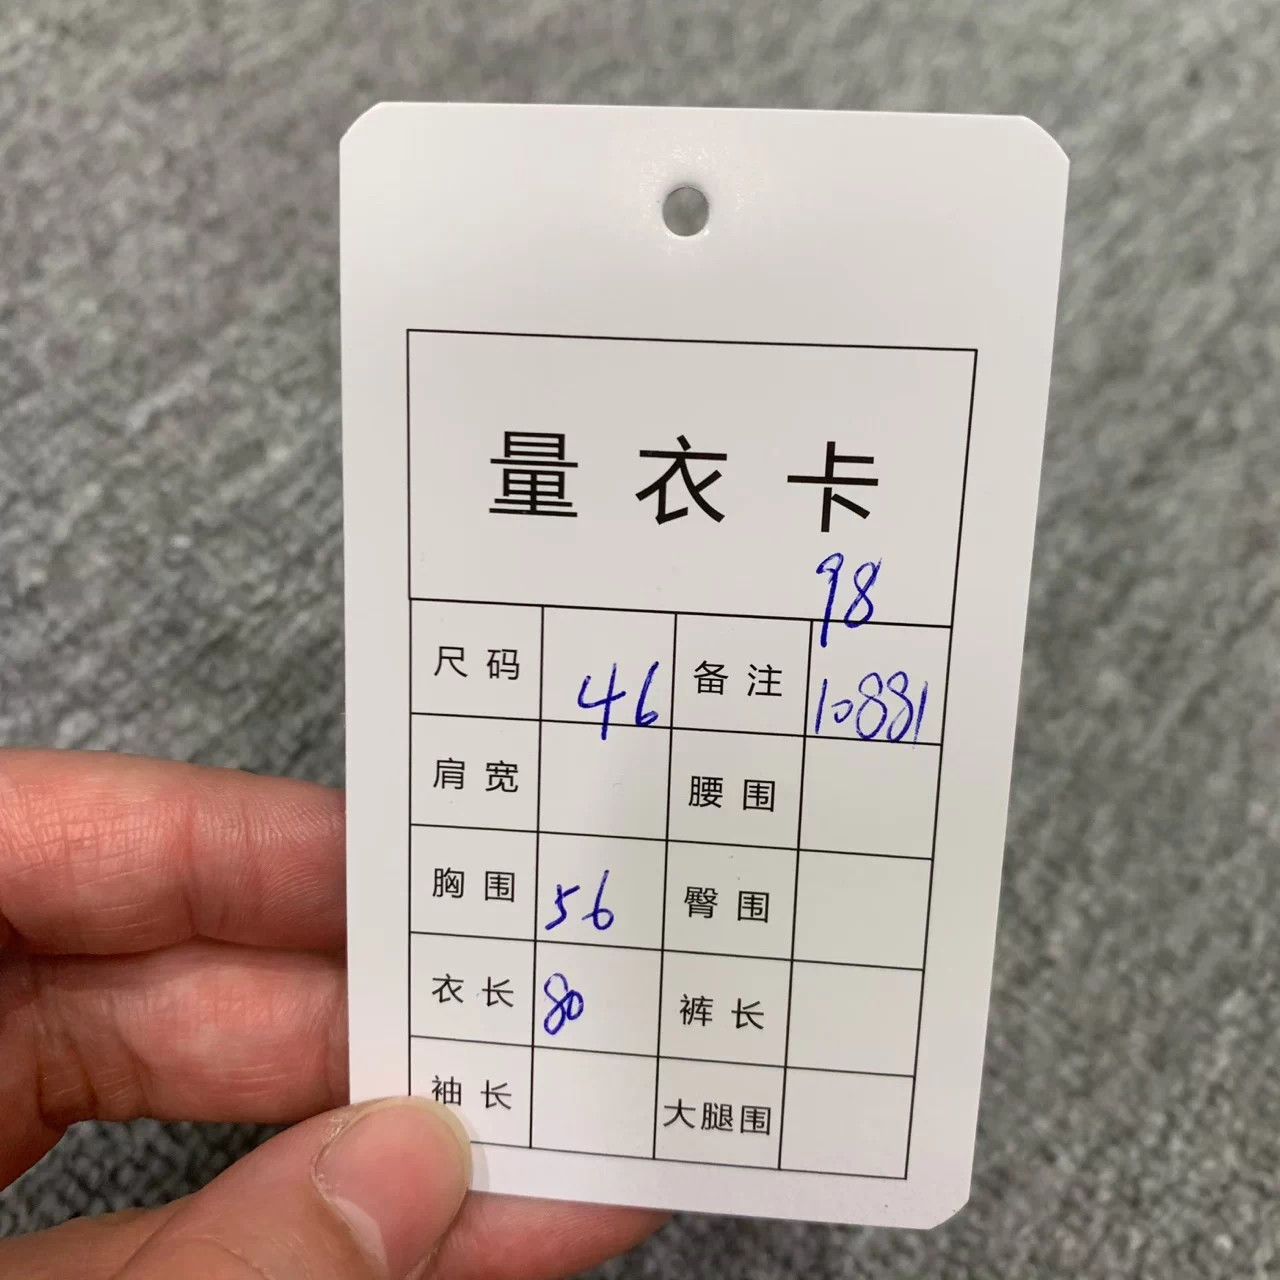 量衣卡
98
尺码 46 备注 10881
肩宽 腰围
胸围 56 臀围
衣长 80 裤长
袖长 大腿围